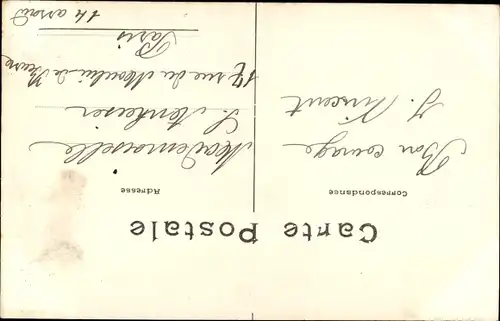 Carte Postale
Correspondance
Adresse
Bon courage
J. Vincent
Mademoiselle
17 rue du Moulin de Beurre
Paris
14 arrond